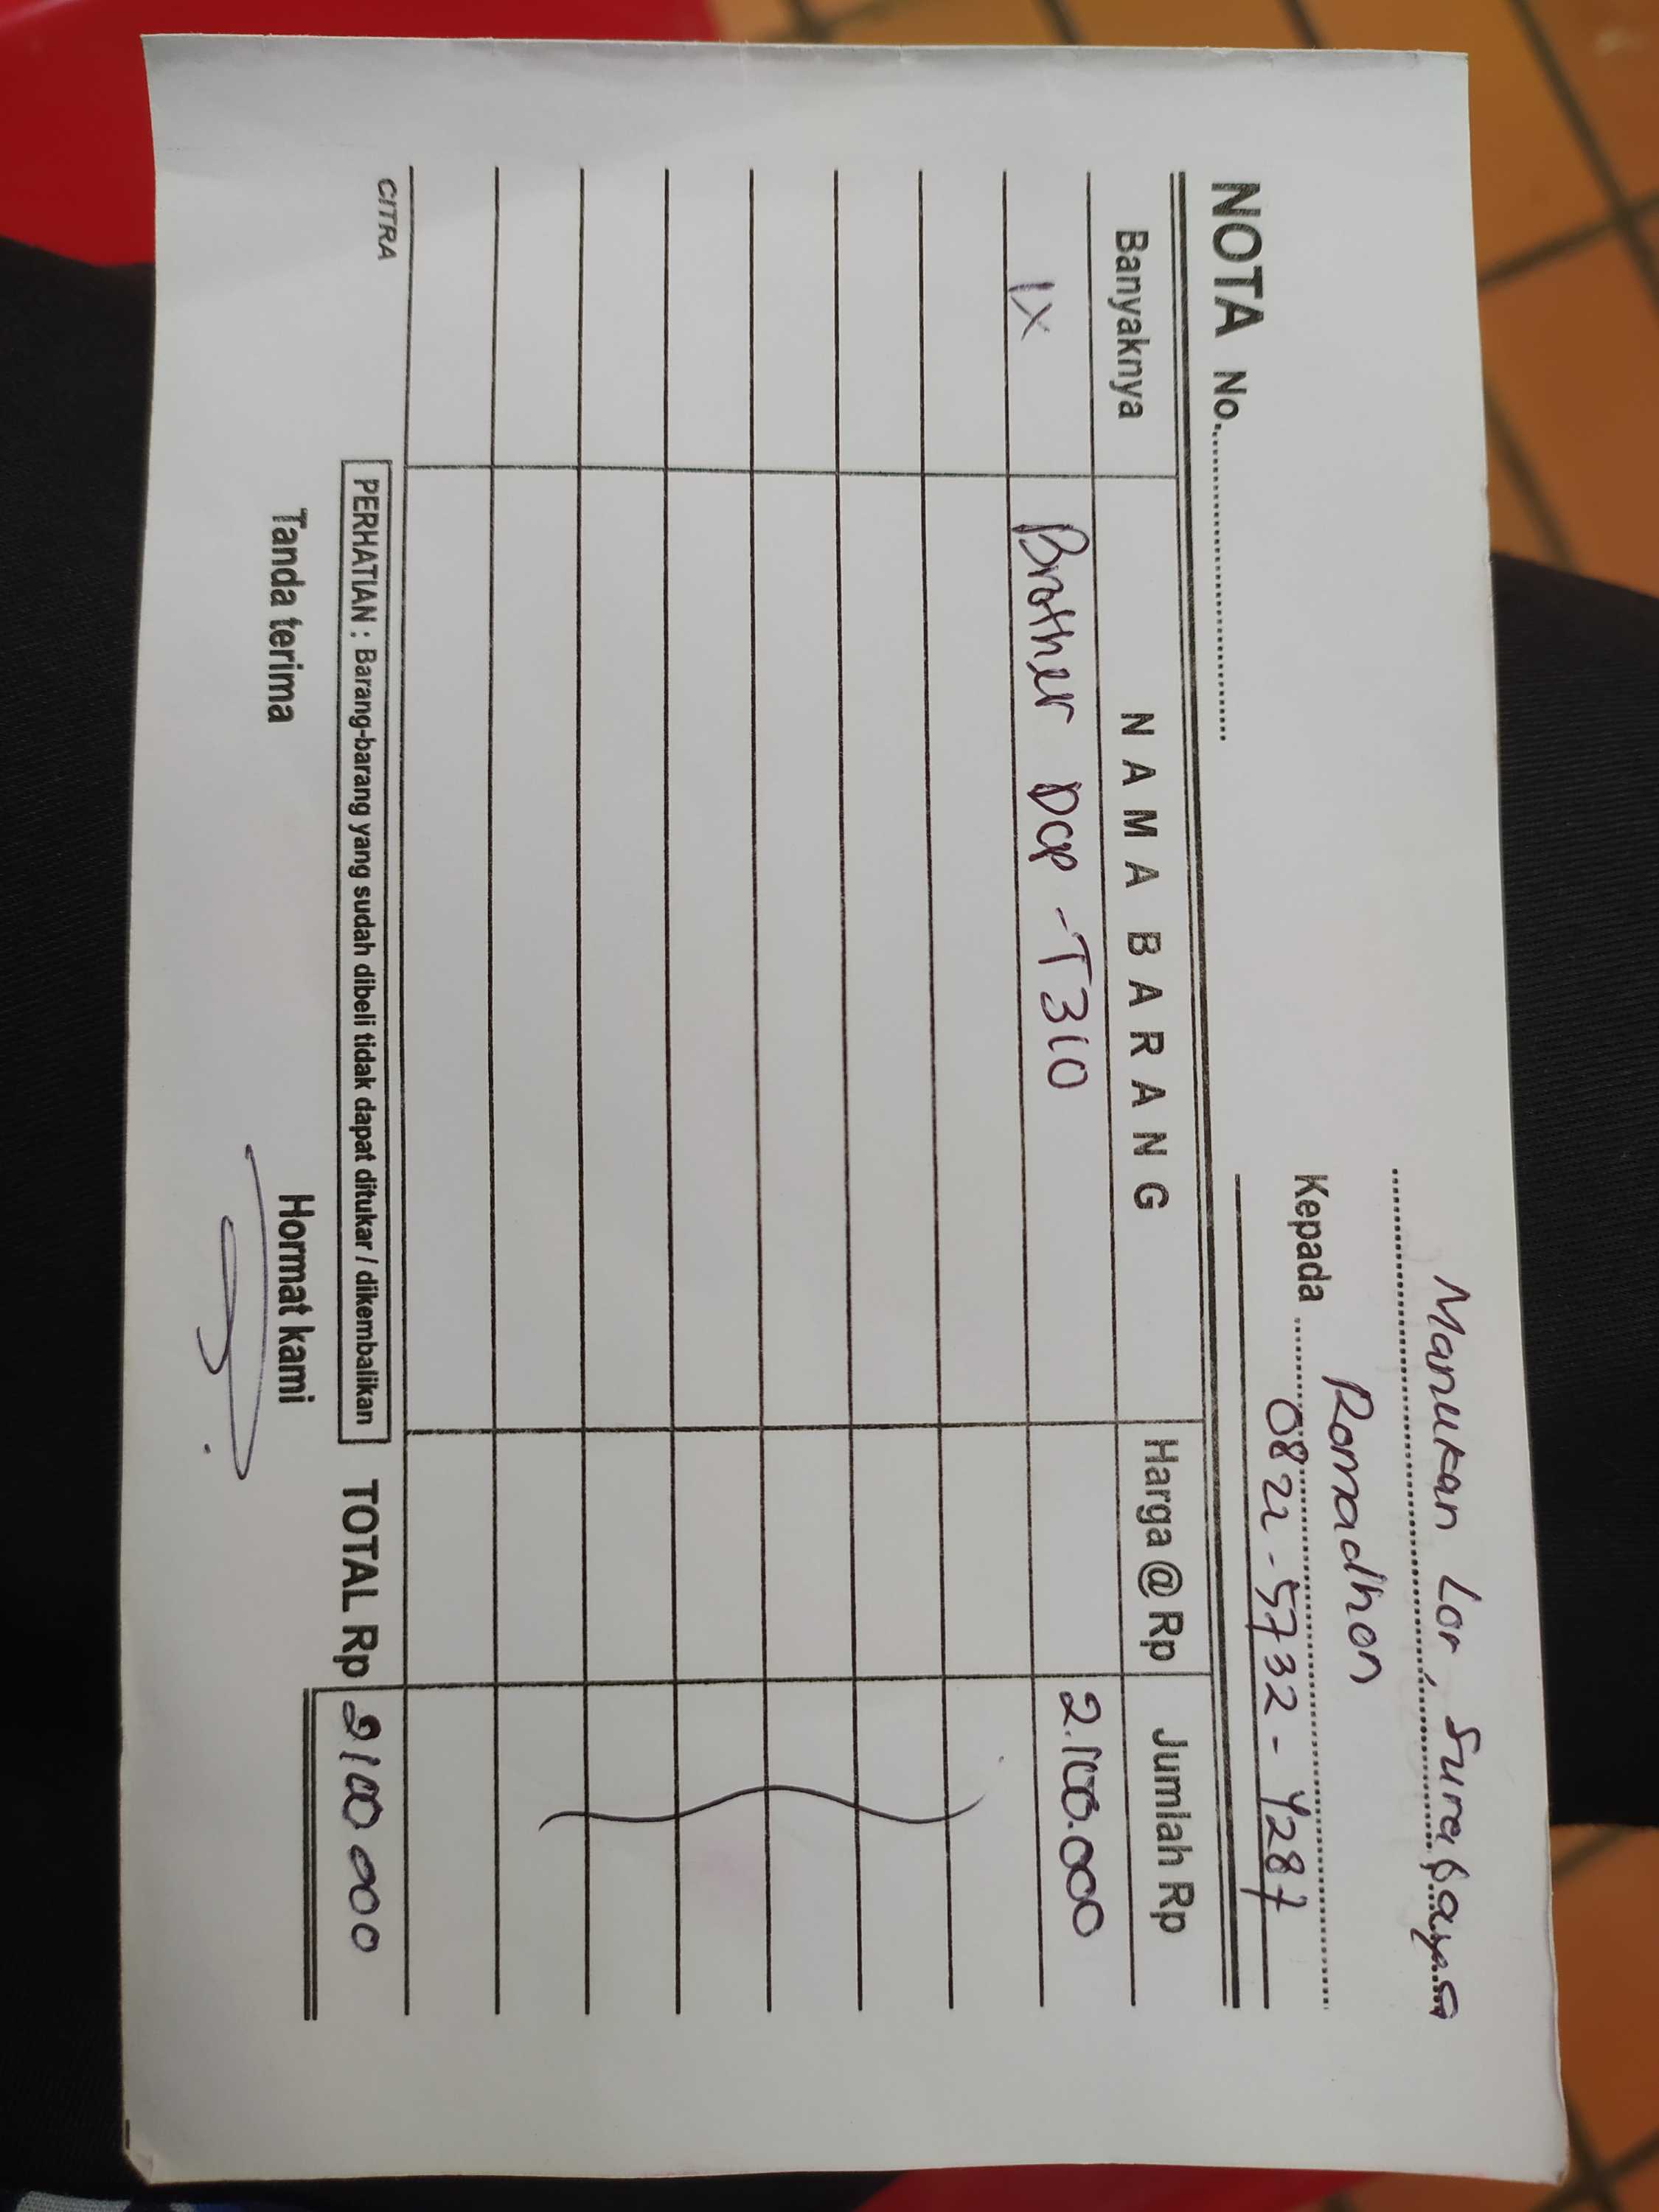 Manukan Lor, Surabaya
Romadhon
Kepada 0822-5732-4287
NOTA No.
Banyaknya NAMA BARANG Harga @ Rp Jumlah Rp
1X Brother DCP-T310 2.100.000
CITRA PERHATIAN : Barang-barang yang sudah dibeli tidak dapat ditukar / dikembalikan TOTAL Rp 2100 000
Tanda terima Hormat kami